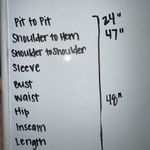 Pit to Pit 24"
Shoulder to Hem 47"
Shoulder to Shoulder
Sleeve
Bust
Waist 48"
Hip
Inseam
Length